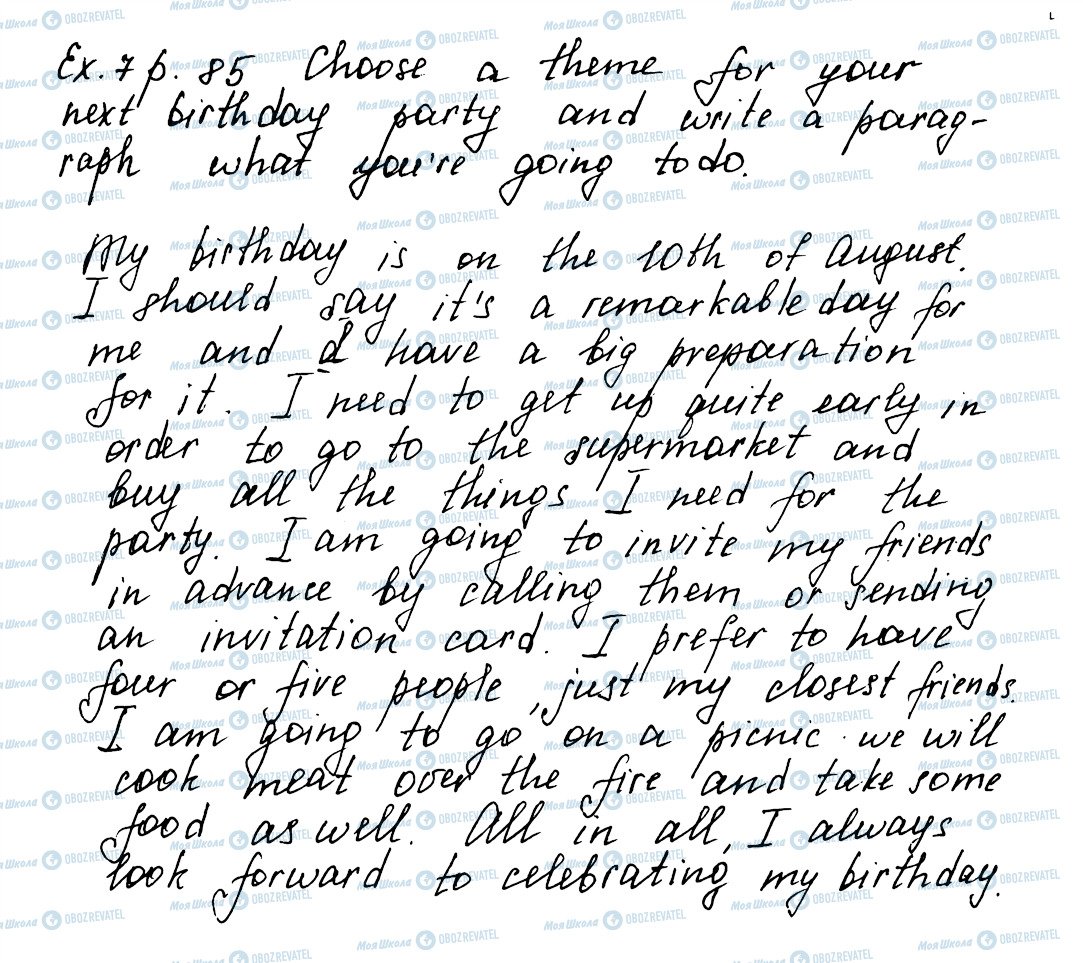 Ex. 7 p. 85 Choose a theme for your
next birthday party and write a parag-
raph what you're going to do.
My birthday is on the 10th of August.
I should say it's a remarkable day for
me and I have a big preparation
for it. I need to get up quite early in
order to go to the supermarket and
buy all the things I need for the
party. I am going to invite my friends
in advance by calling them or sending
an invitation card. I prefer to have
four or five people, just my closest friends.
I am going to go on a picnic. we will
cook meat over the fire and take some
food as well. All in all, I always
look forward to celebrating my birthday.
Моя Школа OBOZREVATEL